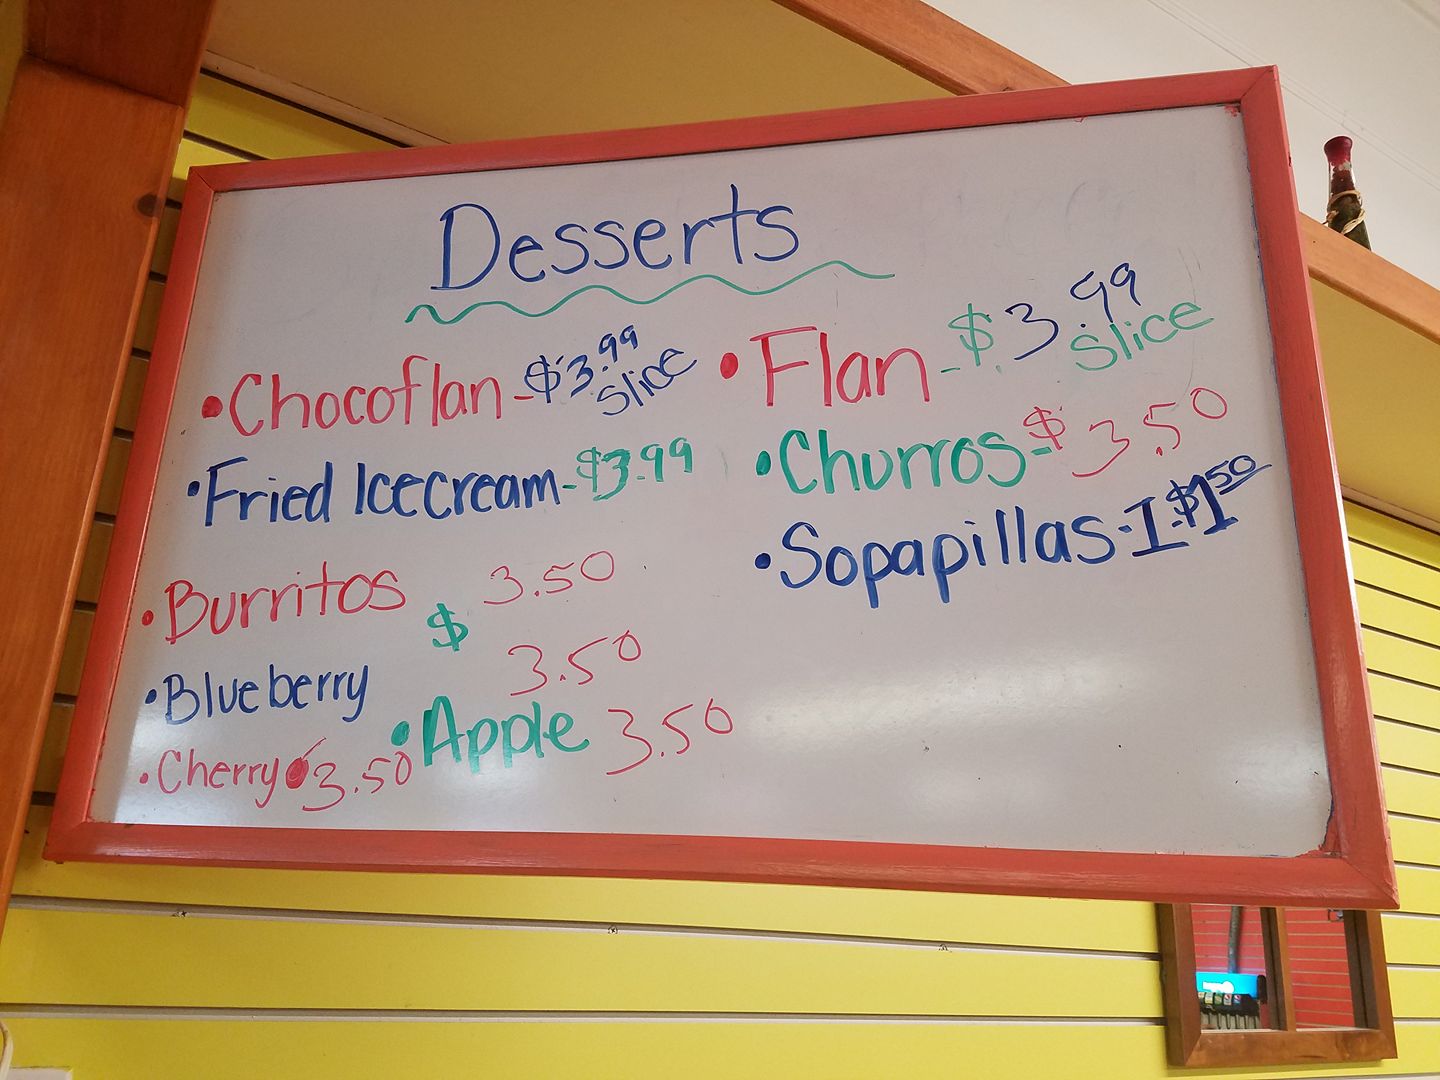 Desserts
• Chocoflan - $3.99 slice
• Fried Icecream - $3.99
• Burritos $ 3.50
• Blueberry 3.50
• Cherry 3.50
• Apple 3.50
• Flan - $3.99 slice
• Churros - $3.50
• Sopapillas - 1-$1.50